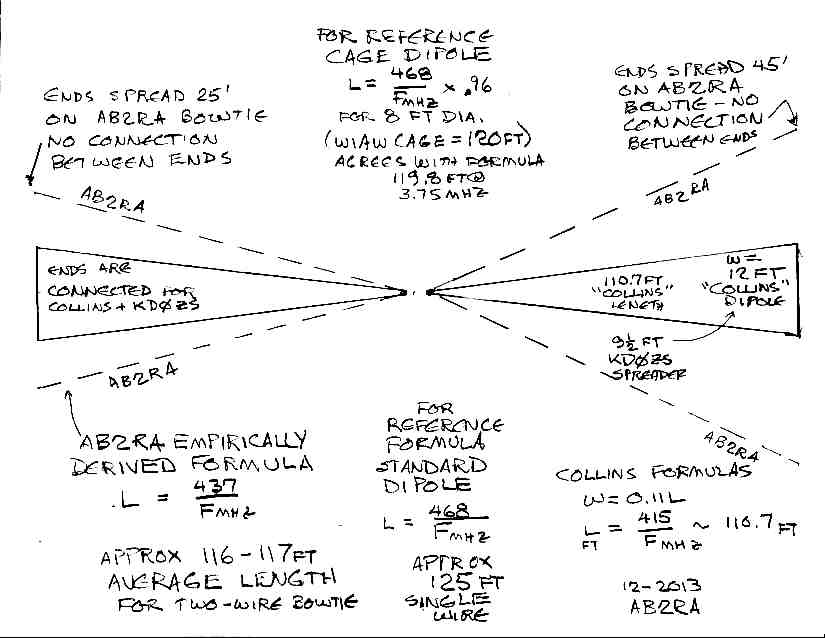 FOR REFERENCE
CAGE DIPOLE
L = 468/FMHZ x .96
FOR 8 FT DIA.
(W1AW CAGE = 120FT)
AGREES WITH FORMULA
119.8 FT@
3.75MHZ
ENDS SPREAD 25'
ON AB2RA BOWTIE
NO CONNECTION
BETWEEN ENDS
ENDS SPREAD 45'
ON AB2RA
BOWTIE - NO
CONNECTION
BETWEEN ENDS
AB2RA
AB2RA
ENDS ARE
CONNECTED FOR
COLLINS + KDØZS
110.7FT
"COLLINS"
LENGTH
W=
12 FT
"COLLINS"
DIPOLE
9½ FT
KDØZS
SPREADER
AB2RA
AB2RA
AB2RA EMPIRICALLY
DERIVED FORMULA
L = 437/FMHZ
APPROX 116-117FT
AVERAGE LENGTH
FOR TWO-WIRE BOWTIE
FOR
REFERENCE
FORMULA
STANDARD
DIPOLE
L = 468/FMHZ
APPROX
125 FT
SINGLE
WIRE
COLLINS FORMULAS
W = 0.11L
L FT = 415/FMHZ ~ 110.7 FT
12-2013
AB2RA